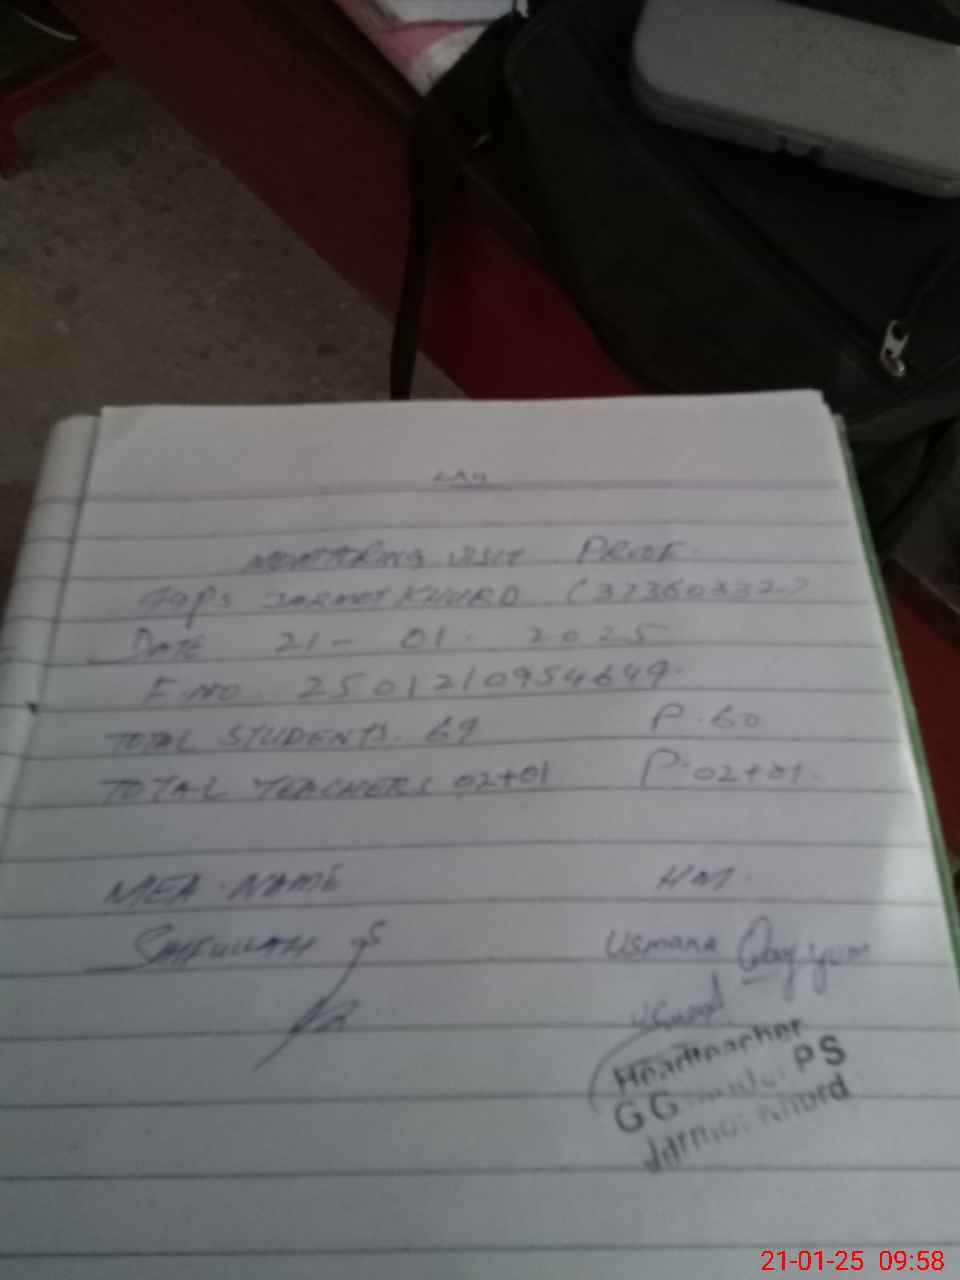 MONITORING VISIT PROOF.
GGPS JARMOT KHURD (37360332)
DATE 21 - 01 - 2025
F.NO. 2501210954649.
TOTAL STUDENTS. 69 P. 60
TOTAL TEACHERS 02+01 P. 02+01.
MEA NAME HM.
Usmana Qayyum
Headteacher
GG PS
Jarmot Khurd
21-01-25 09:58